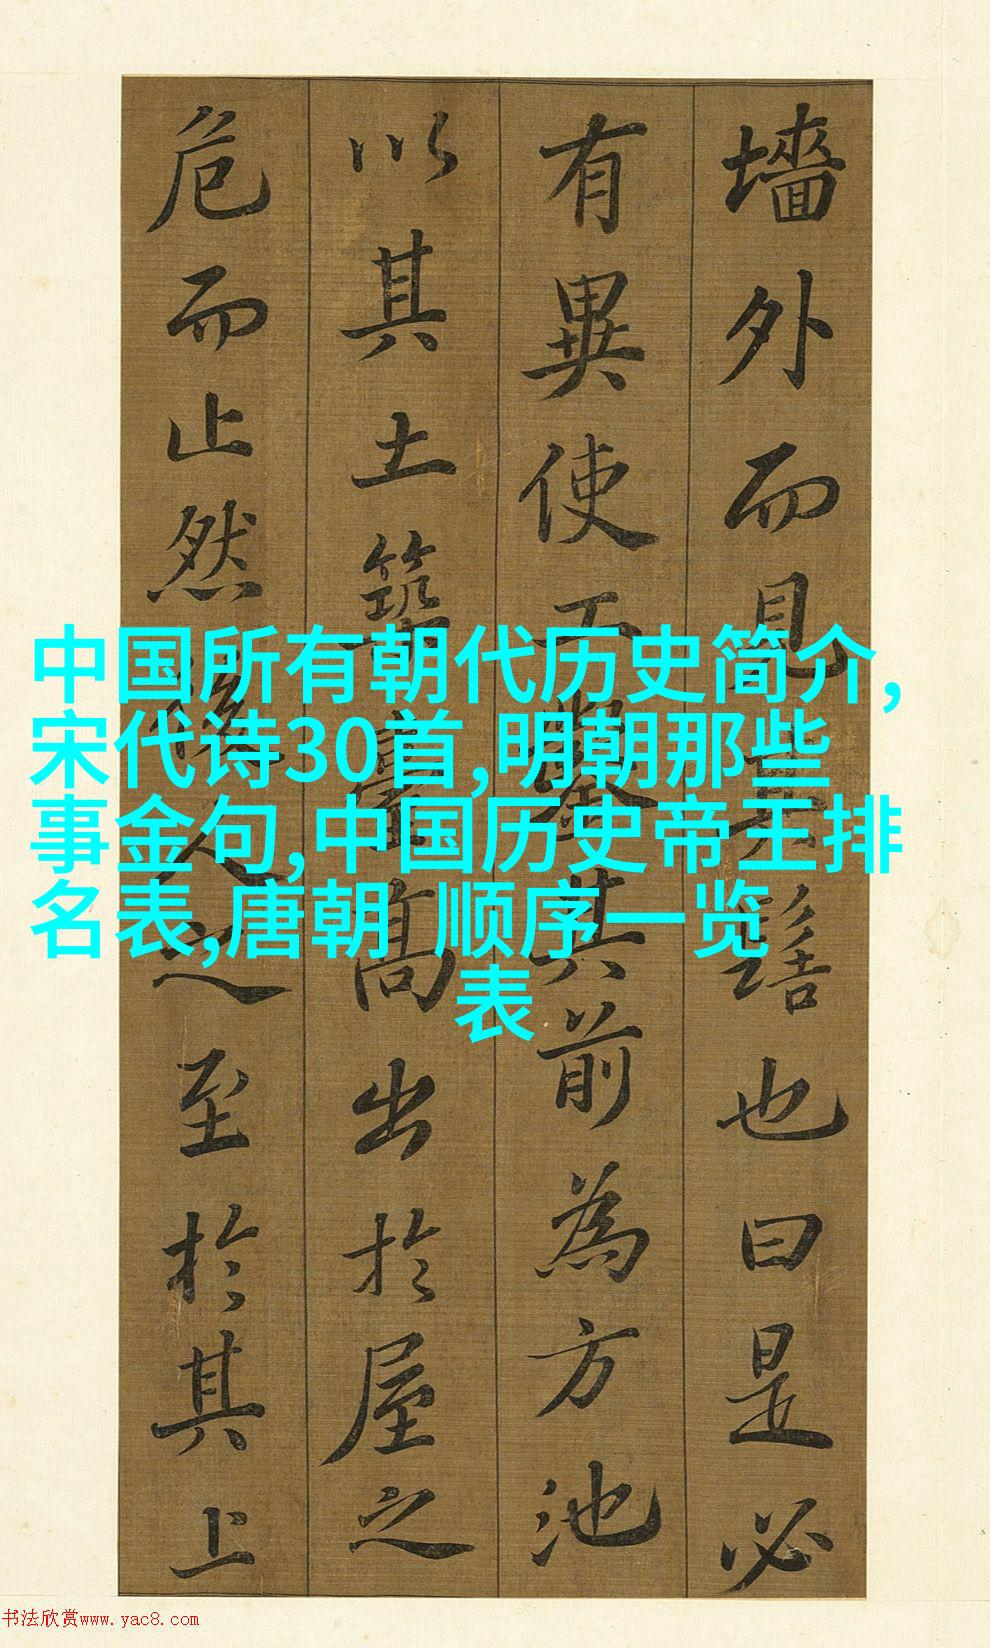 墻外而見其髻也曰是必
有異使工鑿其前為方池
以其土築臺高出於屋之
危而止然後人之至於其上
中国所有朝代历史简介,
宋代诗30首,明朝那些
事金句,中国历史帝王排
名表,唐朝 顺序一览
表
书法欣赏www.yac8.com